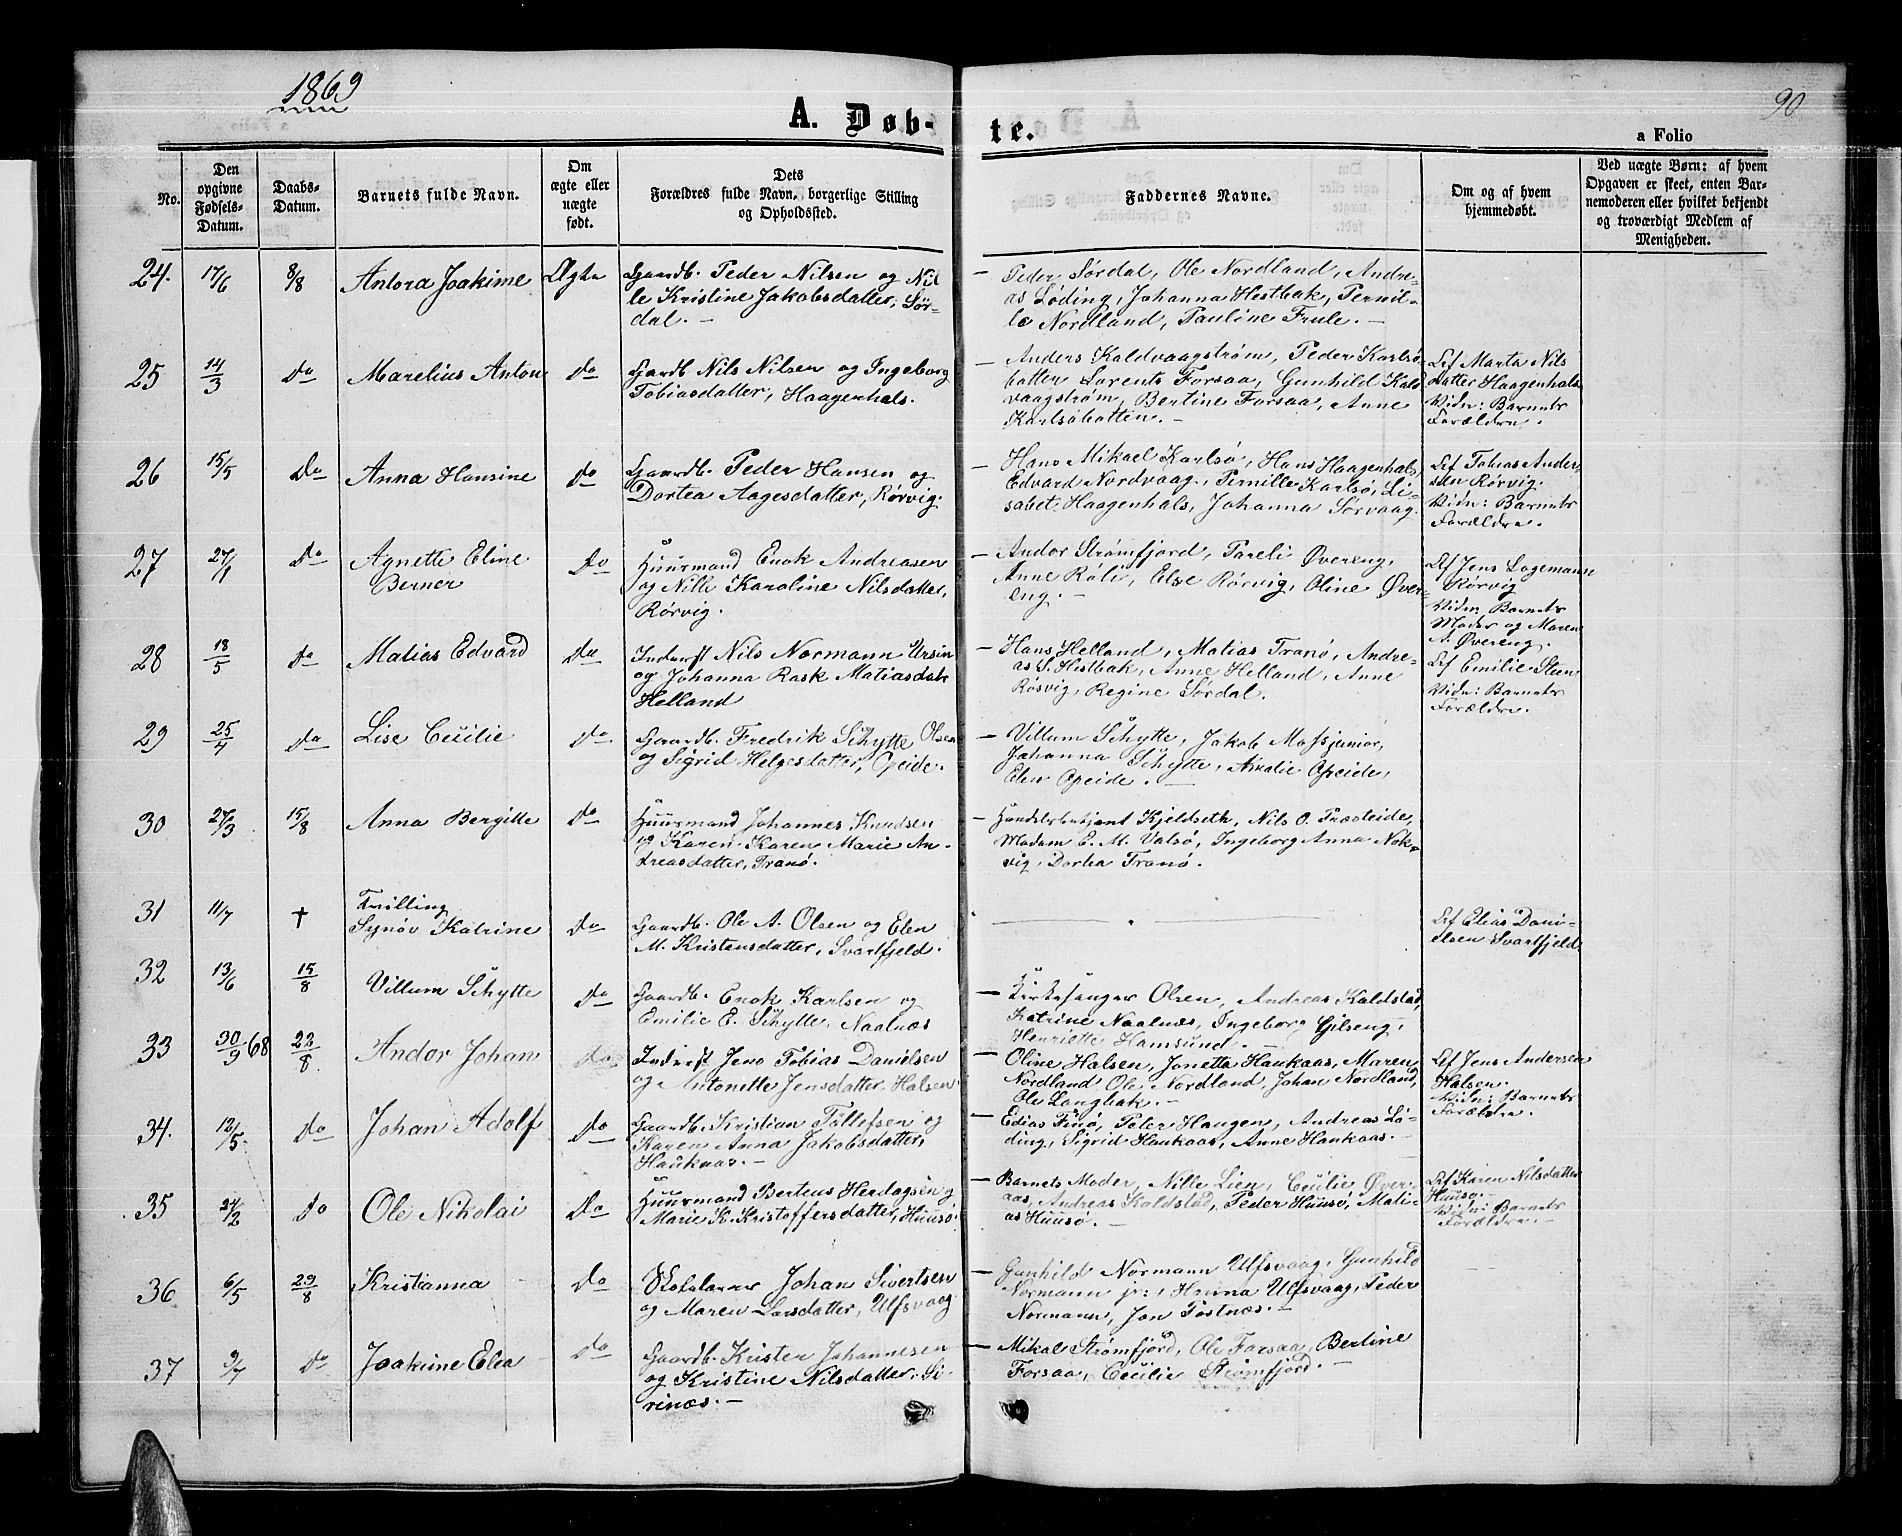 1869
90
A. Døb-
te.
a Folio
No.
Den
opgivne
Fødsels-
Datum.
Daabs-
Datum.
Barnets fulde Navn.
Om
ægte eller
uægte
født.
Dets
Forældres fulde Navn, borgerlige Stilling
og Opholdssted.
Faddernes Navne.
Om og af hvem
hjemmedøbt.
Ved uægte Børn: af hvem
Opgaven er skeet, enten Bar-
nemoderen eller hvilket bekjendt
og troværdigt Medlem af
Menigheden.
24. 17/6 8/8 Antora Joakime Ægte
Gaardb. Peder Nilsen og Nil
le Kristine Jakobsdatter, Sør-
dal. —
— Peder Sørdal, Ole Nordland, Andre-
as Løding, Johanna Hestbak, Pernil-
le Nordland, Pauline Frule. —
25 14/3 Do Marelius Anton Do
Gaardb Nils Nilsen og Ingeborg
Tobiasdatter, Haagenhals.
— Anders Kaldvaagstrøm, Peder Karlsø-
batten Lorents Forsaa, Gunhild Kald
vaagstrøm, Bertine Forsaa, Anne
Karlsøbotten. —
Af Marta Nils
datter Haagenhals
Vidn: Barnets
Forældre.
26 15/5 Do Anna Hansine Do
Gaardb. Peder Hansen og
Dortea Aagesdatter, Rørvig.
— Hans Mikael Karlsø, Hans Haagenhals,
Edvard Nordvaag, Pernille Karlsø, Li-
sabet Haagenhals, Johanna Sørvaag.
Af Tobias Ander
sen Rørvig.
Vidn: Barnets
Forældre.
27 27/1 Do Agnette Eline
Berner Do
Huurmand Enok Andreasen
og Nille Karoline Nilsdatter,
Rørvig.
— Andor Strømfjord, Pareli Øvereng,
Anne Røli, Else Rørvig, Oline Øver-
eng. —
Af Jens Lagemann
Rørvig
Vidn. Barnets
Moder og Maren
A. Øvereng.
28 18/5 Do Matias Edvard Do
Inderst Nils Normann Ursin
og Johanna Rask Matiasdatr
Helland
— Hans Helland, Matias Tranø, Andre-
as S. Hestbak, Anne Helland, Anne
Røsvig, Regine Sørdal.
Af Emilie Steen
Vidn: Barnets
Forældre.
29 25/4 Do Lise Cecilie Do
Gaardb. Fredrik Schytte Olsen
og Sigrid Helgesdatter, Opeide.
— Villum Schytte, Jakob Mossjunior,
Johanna Schytte, Amalie Opeide,
Elen Opeide. —
30 27/3 15/8 Anna Bergitte Do
Huurmand Johannes Knudsen
og Karen Karen Marie An-
dreasdatter, Tranø.
— Handelsbetjent Kjeldseth, Nils O. Træsleide,
Madam E. M. Valsø, Ingeborg Anna Nok-
vig, Dortea Tranø.
31 11/7 †
Tvilling
Synøv Katrine Do
Gaardb. Ole A. Olsen og Elen
M. Kristensdatter, Svartfjeld.
Af Elias Dani-
elsen Svartfjeld
32 13/6 15/8 Villum Schytte Do
Gaardb. Enok Karlsen og
Emilie E. Schytte, Naalnæs
— Kirkesanger Olsen, Andreas Kaldstad,
Katrine Naalnæs, Ingeborg Gilseng,
Henriette Hamsund. —
33 30/9 68 22/8 Andor Johan Do
Inderst Jens Tobias Danielsen
og Antonette Jensdatter, Halsen.
— Oline Halsen, Jonetta Haukaas, Maren
Nordland Ole Nordland, Johan Nordland,
Ole Langbak. —
Af Jens Andersen
Halsen.
Vidn: Barnets
Forældre.
34. 12/5 Do Johan Adolf Do
Gaardb. Kristian Tollefsen og
Karen Anna Jakobsdatter,
Haukaas. —
— Edias Finø, Peter Haugen, Andreas Lø-
ding, Sigrid Haukaas, Anne Haukaas. —
35 24/2 Do Ole Nikolai Do
Huurmand Berteus Herdagsen og
Marie K. Kristoffersdatter, Huusø.
— Barnets Moder, Nille Lien, Cecilie Øver-
aas, Andreas Kaldstad, Peder Huusø, Mati-
as Huusø. —
Af Karen Nilsdatter
Huusø. —
Vidn: Barnets
Forældre. —
36 6/5 29/8 Kristianna Do
Skolelærer Johan Sivertsen
og Maren Larsdatter, Ulfsvaag.
— Gunhild Normann Ulfsvaag, Gunhild
Normann jr:, Hanna Ulfsvaag, Peder
Normann, Jon Tostnæs. —
37 9/7 Do Joakime Elea Do
Gaardb. Krister Johannesen
og Kristine Nilsdatter, Si-
rinæs. —
— Mikal Strømfjord, Ole Forsaa, Bertine
Forsaa, Cecilie Strømfjord. —